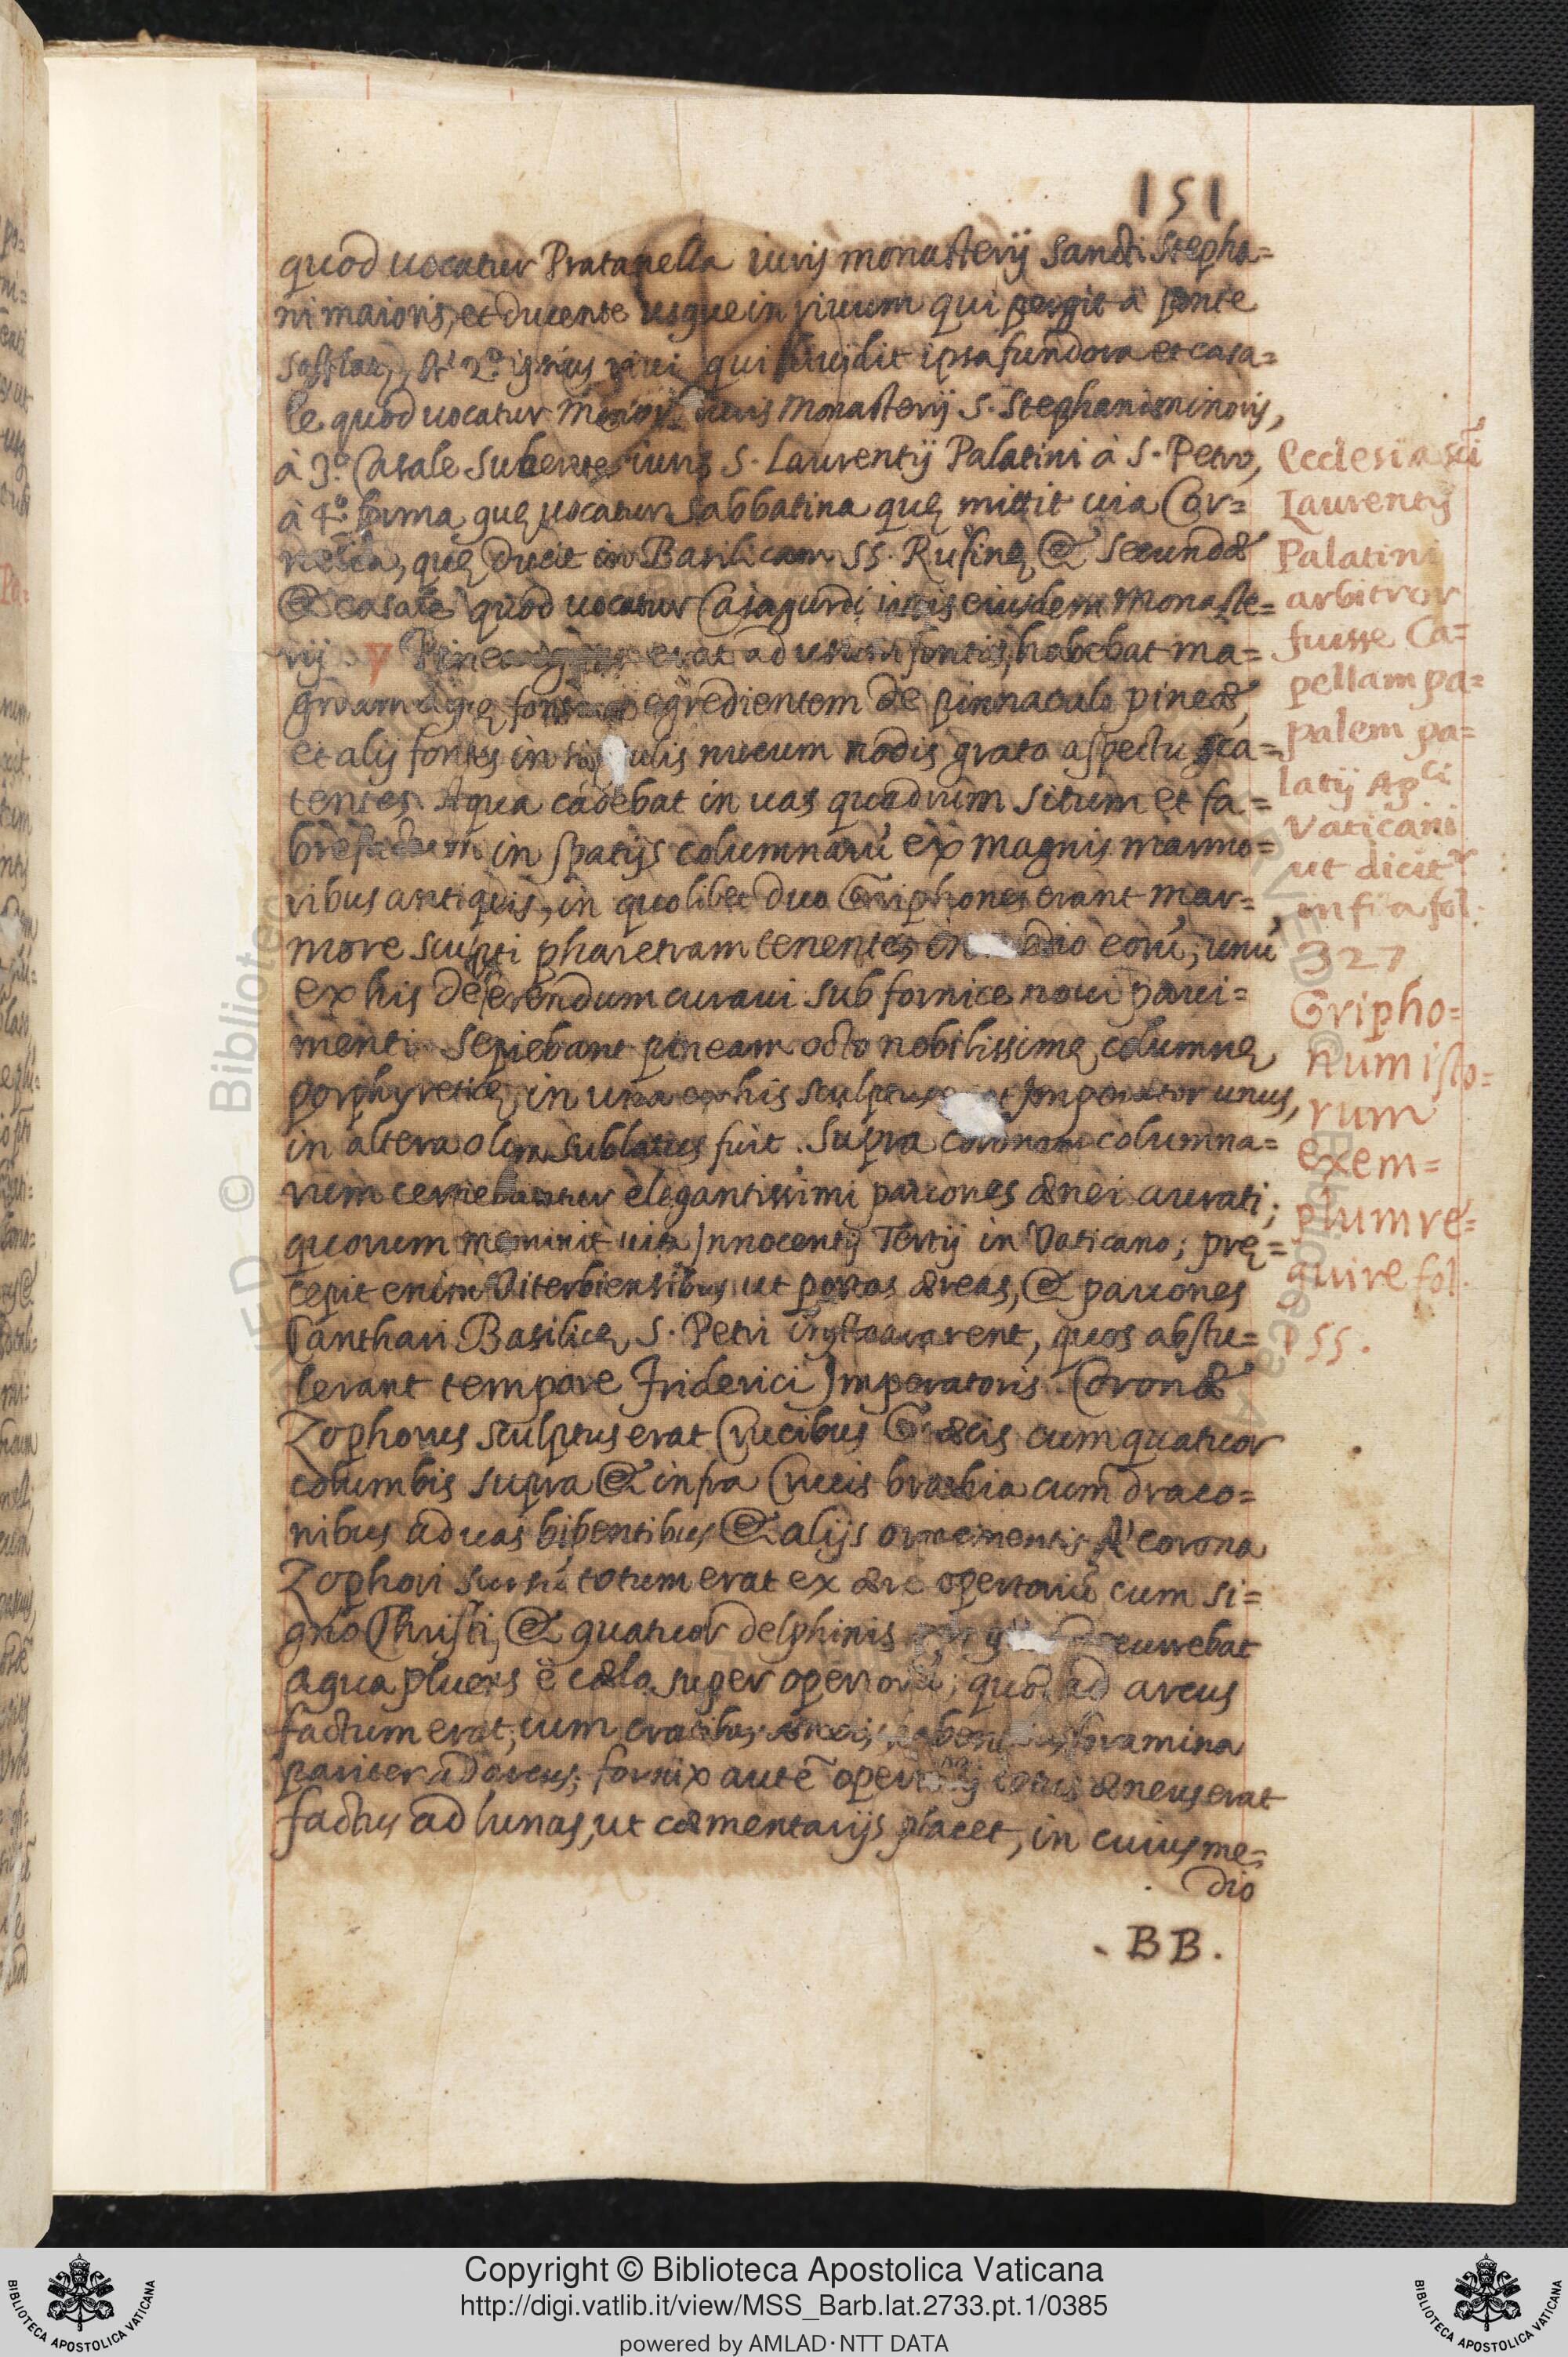 151
quod uocatur Pratanella iuris monasterij Sancti Stepha=
ni maioris, et ducente usque in riuum qui pergit à ponte
qui diuidit ipsa fundora et casa=
le quod uocatur Minor. iuris Monasterij S. Stephani minoris,
à 3.º Casale iuris S. Laurentij Palatini à S. Petro,
à 4.º forma quę uocatur Sabbatina quę mittit uia Cor=
nelia, quę ducit in Basilicam SS. Rufinę & Secundæ
& casale quod uocatur iuris eiusdem Monaste=
rij. Pinea erat ad usum fontis, habebat ma=
gnam aquę egredientem de pinnaculo pineæ,
et alij fontes in ulis nucum nodis grato aspectu sca=
tentes. Aqua cadebat in uas quadrum situm et fa=
brefactum in spatijs columnarū ex magnis marmo=
ribus antiquis, in quolibet duo Griphones erant mar=
more sculpti pharetram tenentes in dio eorū, unū
ex his deferendum curaui sub fornice noui paui=
menti. Sepiebant pineam octo nobilissimę columnę
porphyreticę, in una ex his sculptus Imperator unus,
in altera olim sublatus fuit. Supra coronam columna=
rum cernebantur elegantissimi pauones ænei aurati;
quorum meminit uita Innocentij Tertij in Vaticano; prę=
cepit enim Viterbiensibus ut portas æreas, & pauones
Canthari Basilicę S. Petri instaurarent, quos abstu=
lerant tempore Friderici Imperatoris. Coronæ
Zophorus sculptus erat Crucibus Græcis cum quatuor
columbis supra & infra Crucis brachia cum draco=
nibus ad uas bibentibus & alijs ornamentis. A' corona
Zophori totum erat ex ære opertoriū cum si=
gno Christi, & quatuor delphinis currebat
aqua pluens è cælo super opertoriū; quod ad arcus
factum erat, cum cratibus foramina
pariter ad arcus; fornix autē totus æneus erat
factus ad lunas, ut cæmentarijs placet, in cuius me=
dio
. BB .
Ecclesia sc̄i
Laurentij
Palatini
arbitror
fuisse Ca=
pellam pa=
palem pa=
latij Ap.ci
Vaticani
ut dicit.r
infra fol.
327
Gripho=
num isto=
rum
exem=
plum re=
quire fol.
155.
Copyright © Biblioteca Apostolica Vaticana
http://digi.vatlib.it/view/MSS_Barb.lat.2733.pt.1/0385
powered by AMLAD·NTT DATA
BIBLIOTECA APOSTOLICA VATICANA
BIBLIOTECA APOSTOLICA VATICANA